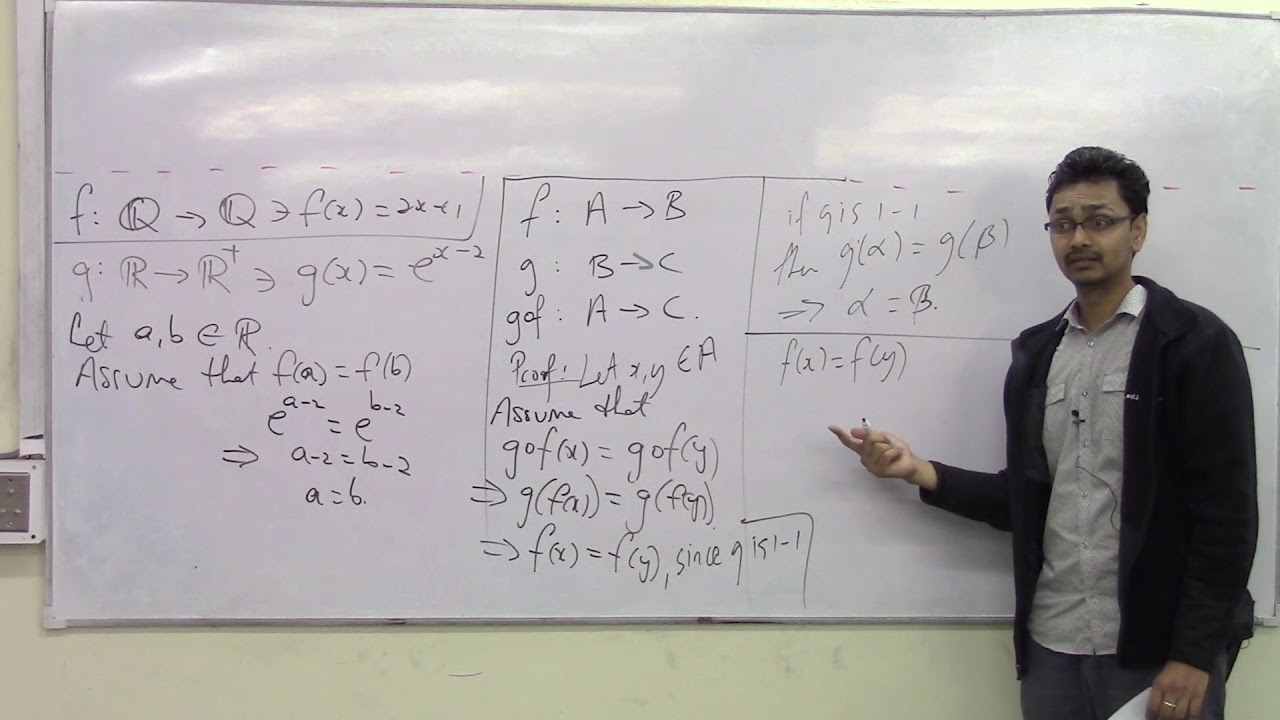 f: ℚ → ℚ ∋ f(x) = 2x+1
g: ℝ → ℝ⁺ ∋ g(x) = e^{x-2}
Let a,b ∈ ℝ.
Assume that f(a) = f(b)
e^{a-2} = e^{b-2}
⇒ a-2 = b-2
a = b.
f: A → B
g: B → C
gof: A → C.
Proof: Let x,y ∈ A
Assume that
gof(x) = gof(y)
⇒ g(f(x)) = g(f(y))
⇒ f(x) = f(y), since g is 1-1
if g is 1-1
then g(α) = g(β)
⇒ α = β.
f(x) = f(y)